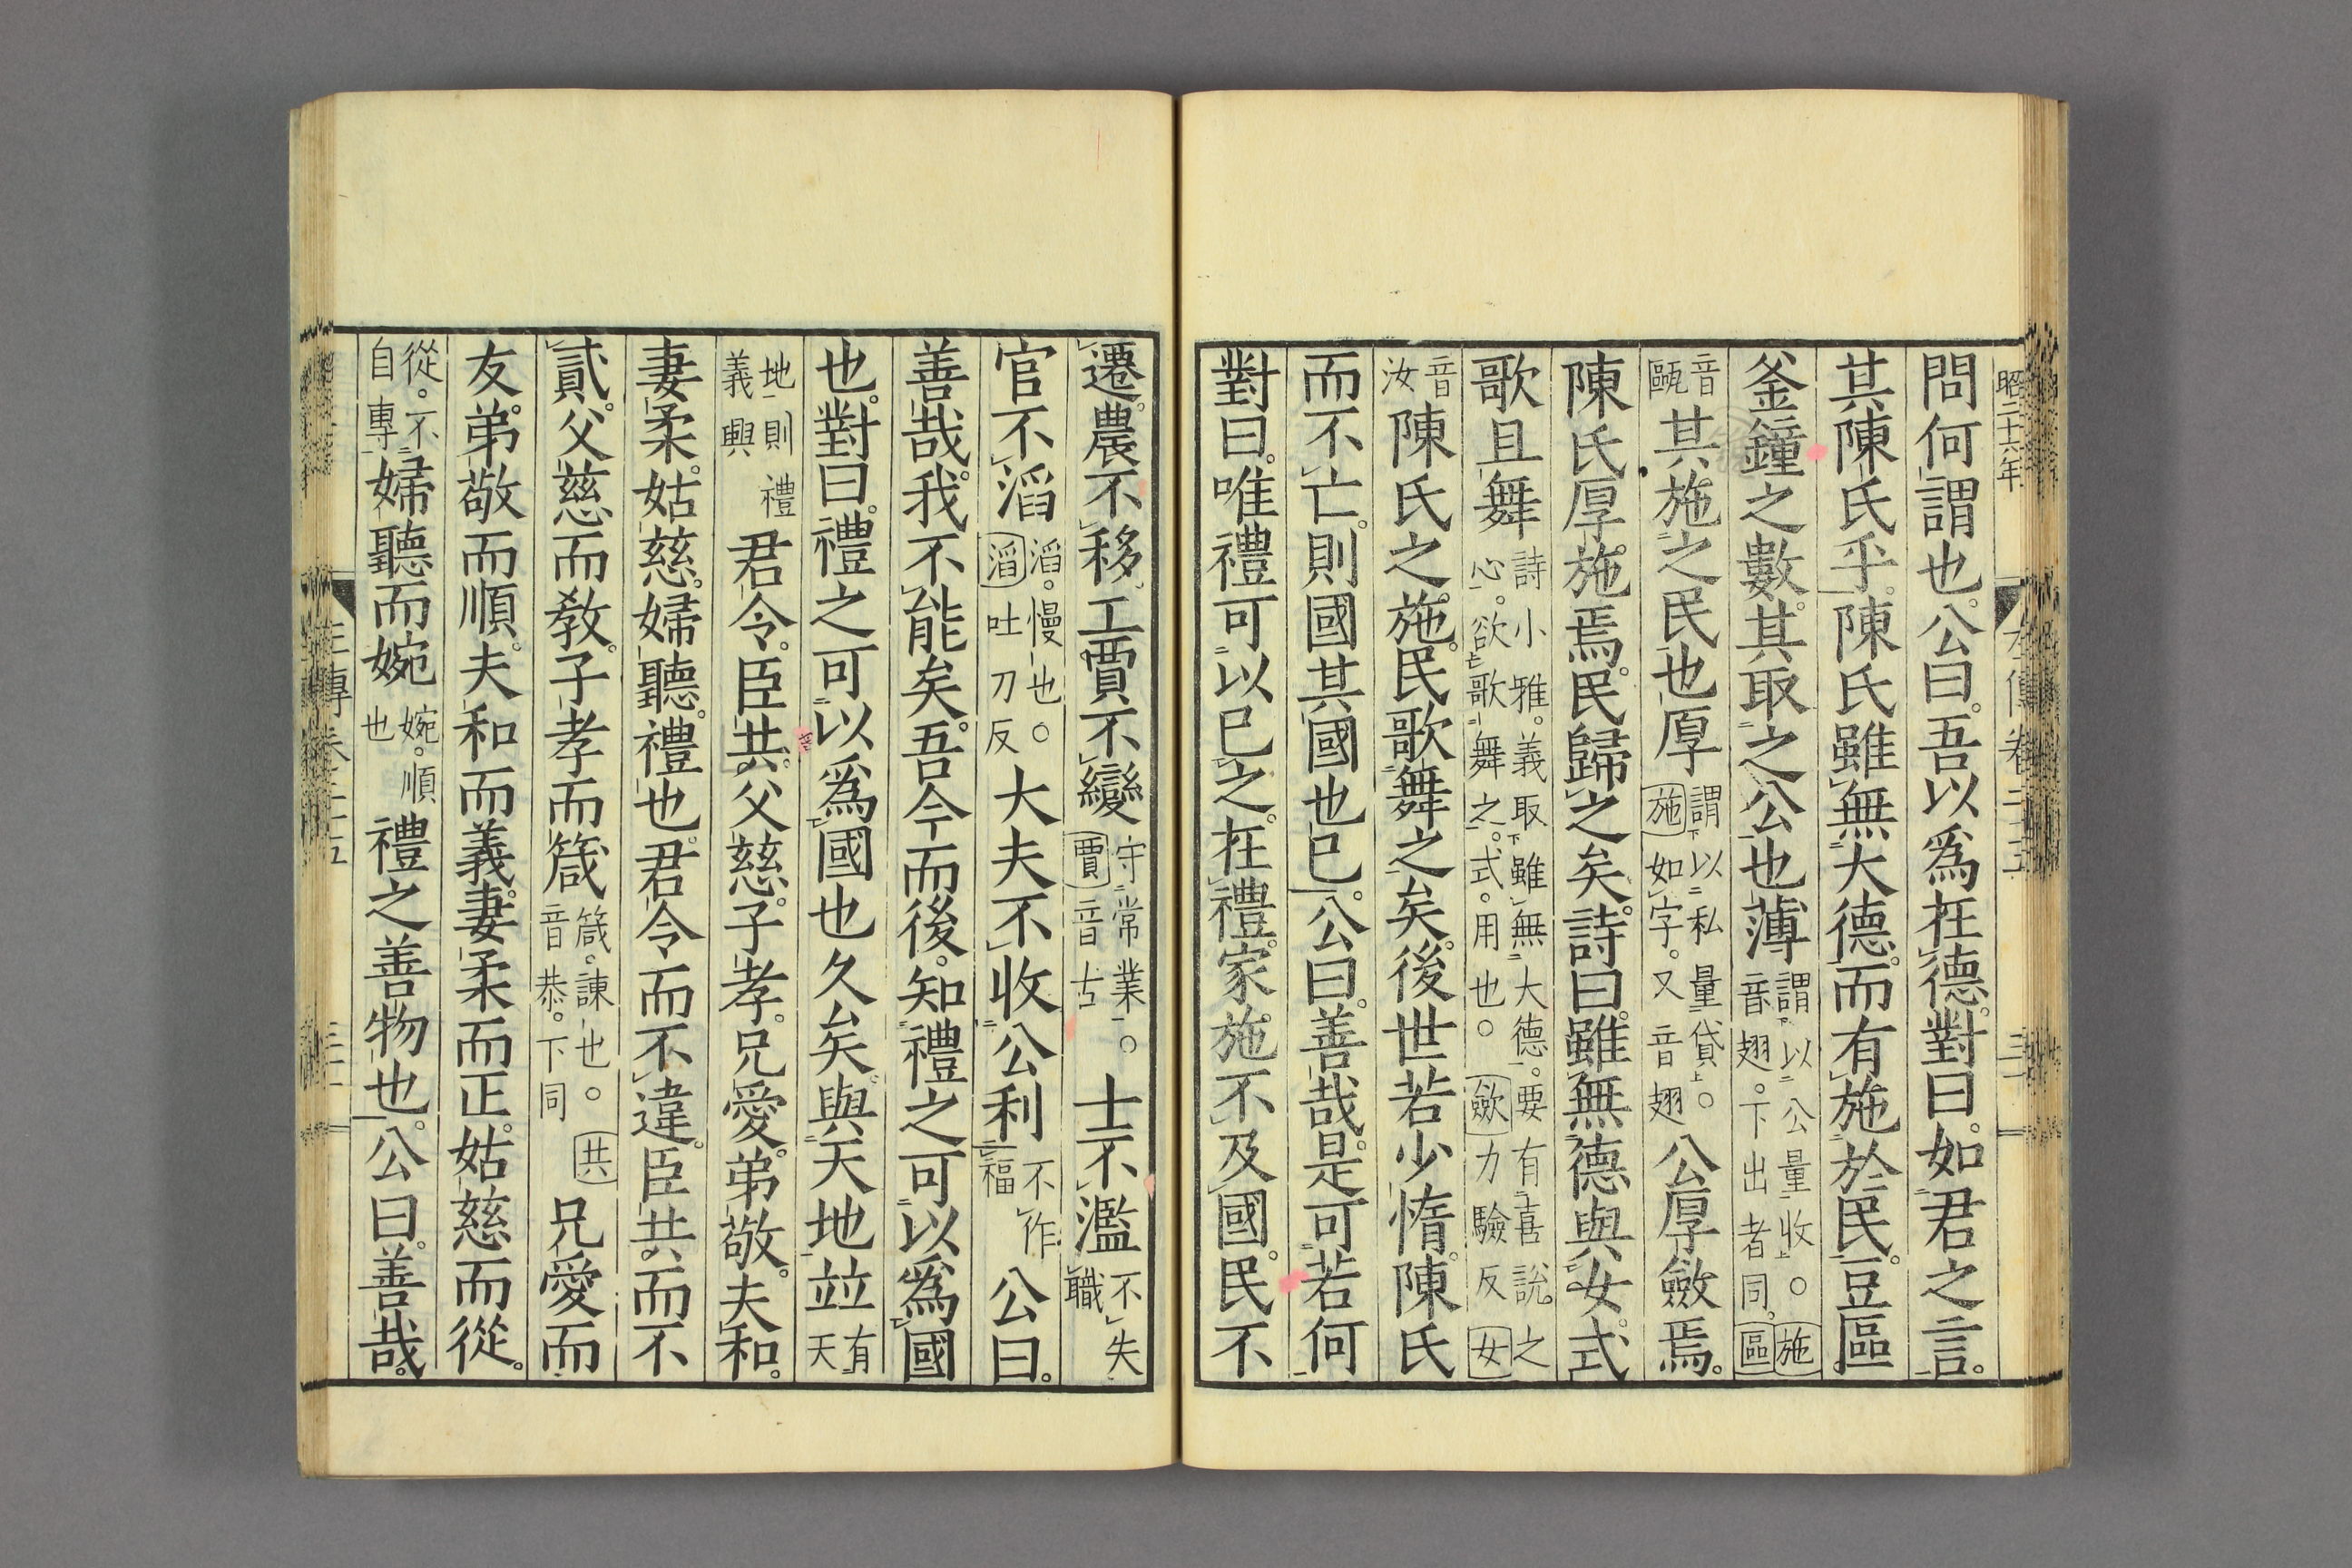 昭二十六年
問何謂也。公曰。吾以爲在德。對曰。如君之言。
其陳氏乎。陳氏雖無大德。而有施於民。豆區
釜鐘之數。其取之公也薄謂以公量收。○施音翅。下出者同。區
音甌其施之民也厚謂以私量貸。○施如字。又音翅公厚斂焉。
陳氏厚施焉。民歸之矣。詩曰。雖無德與女。式
歌且舞詩小雅。義取雖無大德。要有喜說之心。欲歌舞之。式。用也。○歛力驗反女
音汝陳氏之施。民歌舞之矣。後世若少惰。陳氏
而不亡。則國其國也已。公曰。善哉。是可若何
對曰。唯禮可以已之。在禮。家施不及國。民不
遷。農不移。工賈不變守常業。○賈音古士不濫不失職
官不滔滔。慢也。○滔吐刀反大夫不收公利不作福公曰。
善哉。我不能矣。吾今而後。知禮之可以爲國
也。對曰。禮之可以爲國也久矣。與天地竝有天
地則禮義興君令。臣共。父慈。子孝。兄愛。弟敬。夫和。
妻柔。姑慈。婦聽。禮也。君令而不違。臣共而不
貳。父慈而敎。子孝而箴箴。諫也。○共音恭。下同兄愛而
友。弟敬而順。夫和而義。妻柔而正。姑慈而從。
從。不自專婦聽而婉婉。順也禮之善物也。公曰。善哉。